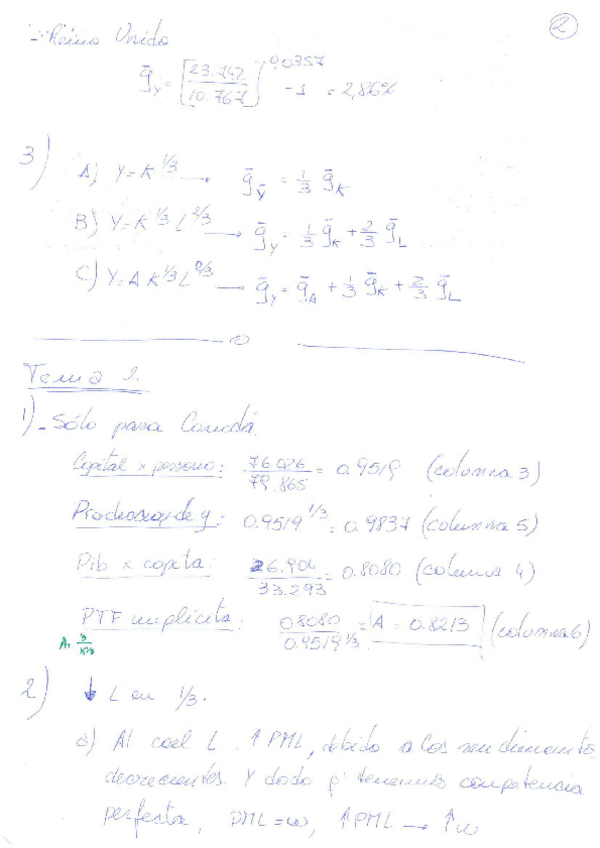 2
- Reino Unido
ḡ_Y = [23.742 / 10.767]^0,0357 - 1 = 2,86%
3) A) Y = K^1/3 → ḡ_Y = 1/3 ḡ_K
B) Y = K^1/3 L^2/3 → ḡ_Y = 1/3 ḡ_K + 2/3 ḡ_L
C) Y = A K^1/3 L^2/3 → ḡ_Y = ḡ_A + 1/3 ḡ_K + 2/3 ḡ_L
Tema 2.
1) - Sólo para Canadá.
Capital x persona: 76.026 / 79.865 = 0.9519 (columna 3)
de y: 0.9519^1/3 = 0.9837 (columna 5)
Pib x capita: 26.904 / 33.293 = 0.8080 (columna 4)
PTF implícita: 0.8080 / 0.9519^1/3 = A = 0.8213 (columna 6)
2) ↓ L en 1/3.
a) Al caer L ↑ PML, debido a los rendimientos
decrecientes. Y dado q' tenemos competencia
perfecta, PML = ω, ↑ PML → ↑ ω